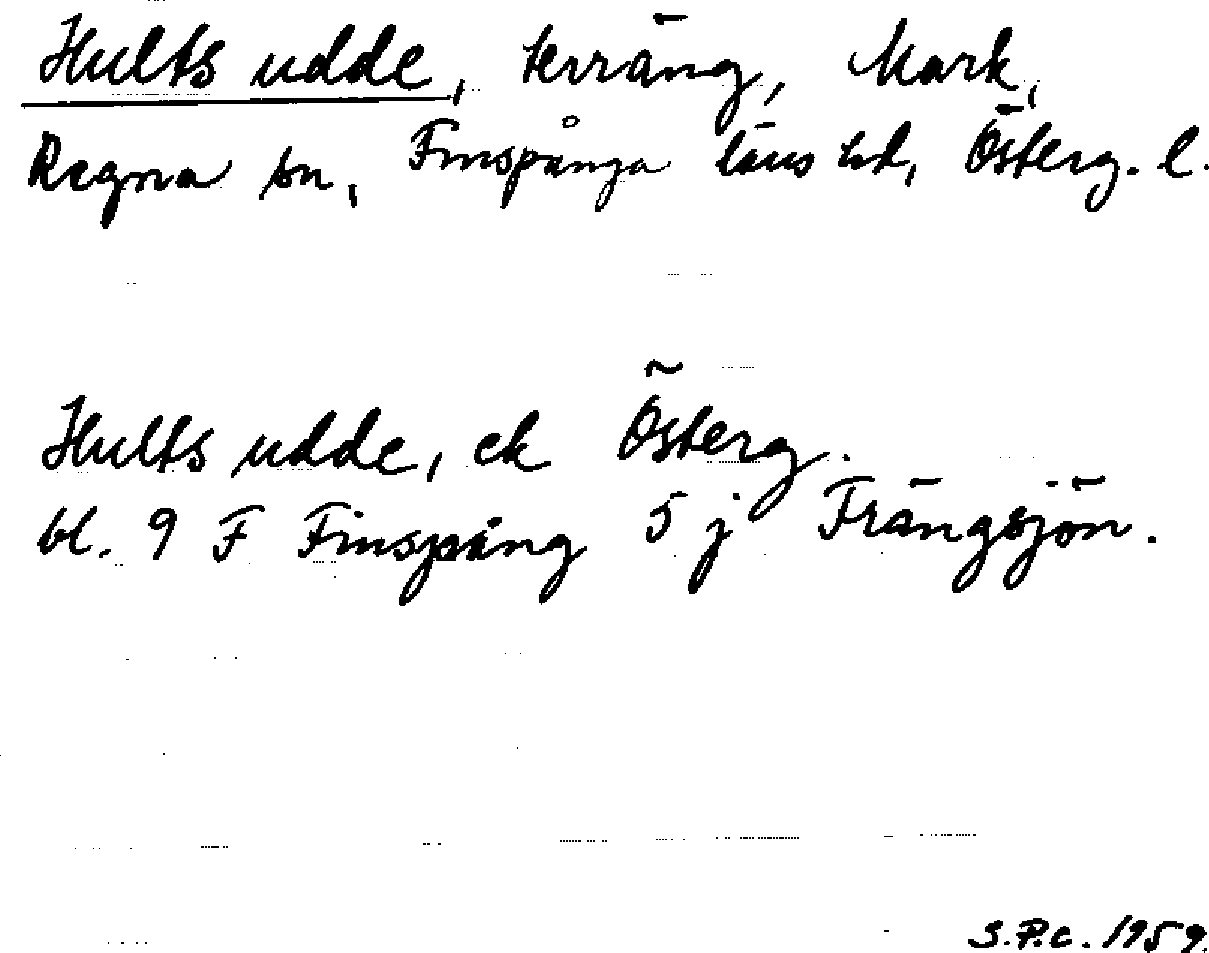 Hults udde, terräng, Mark,
Regna sn, Finspånga läns hd, Österg. l.
Hults udde, ek Österg.
bl. 9 F Finspång 5 j Trängsjön.
S.P.C. 1959.